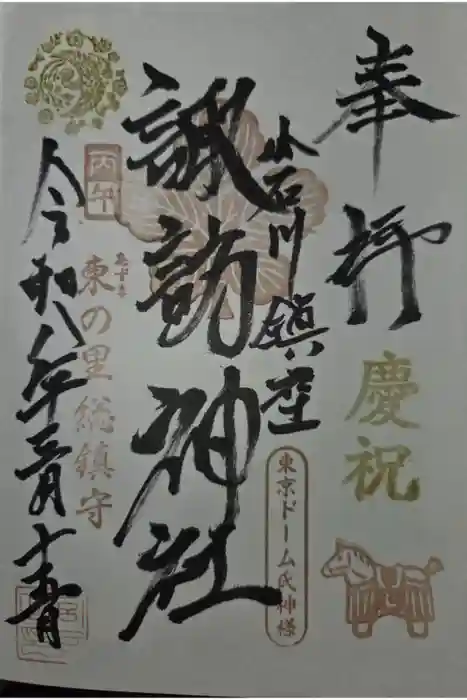 奉拝
慶祝
小石川鎮座
東京ドーム氏神様
諏訪神社
丙午
東の里総鎮守
令和八年三月十五日